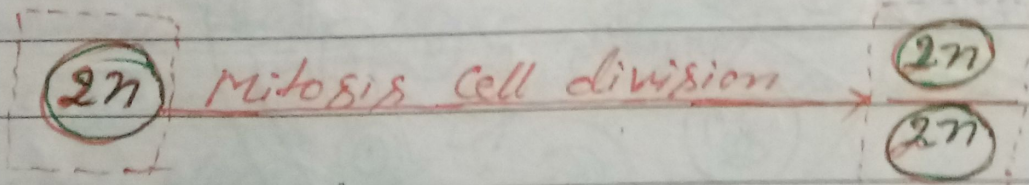 2n Mitosis cell division 2n
2n